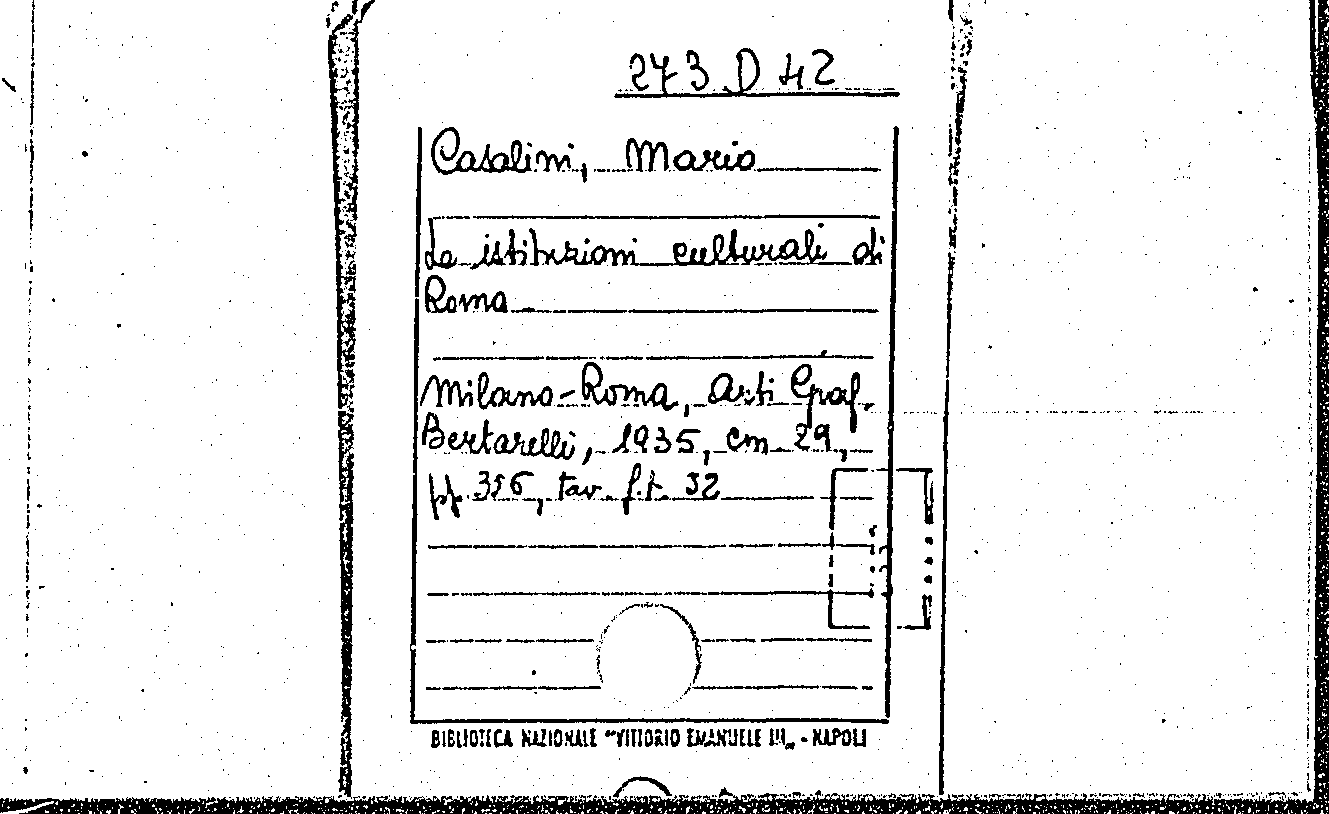 273 D 42
Casalini, Mario
Le istituzioni culturali di
Roma
Milano-Roma, Arti Graf.
Bertarelli, 1935, cm. 29,
pp. 356, tav. f.t. 32
BIBLIOTECA NAZIONALE "VITTORIO EMANUELE III„ - NAPOLI